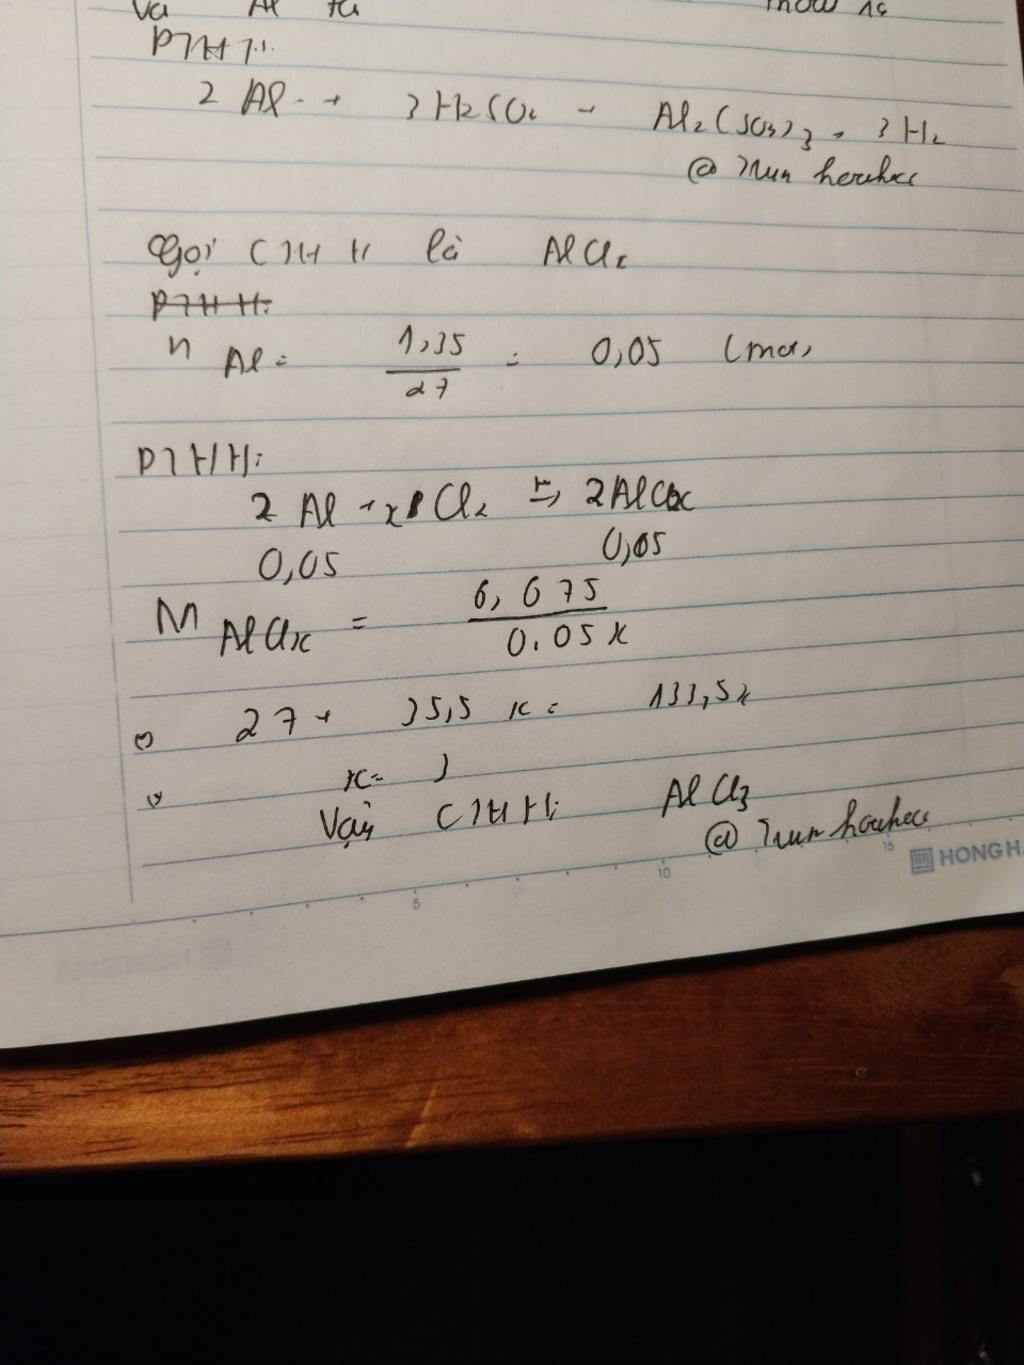 Và Al
PTHH:
2 Al + 3H2SO4 → Al2(SO4)3 + 3H2
@
Gọi CTHH là AlClx
PTHH:
n Al = 1,35 / 27 = 0,05 (mol)
PTHH:
2 Al + x Cl2 → 2AlClx
0,05 0,05
M AlClx = 6,675 / 0.05x
27 + 35,5 x = 133,5x
x = 3
Vậy CTHH: AlCl3
@
5 10 15 HONG HA